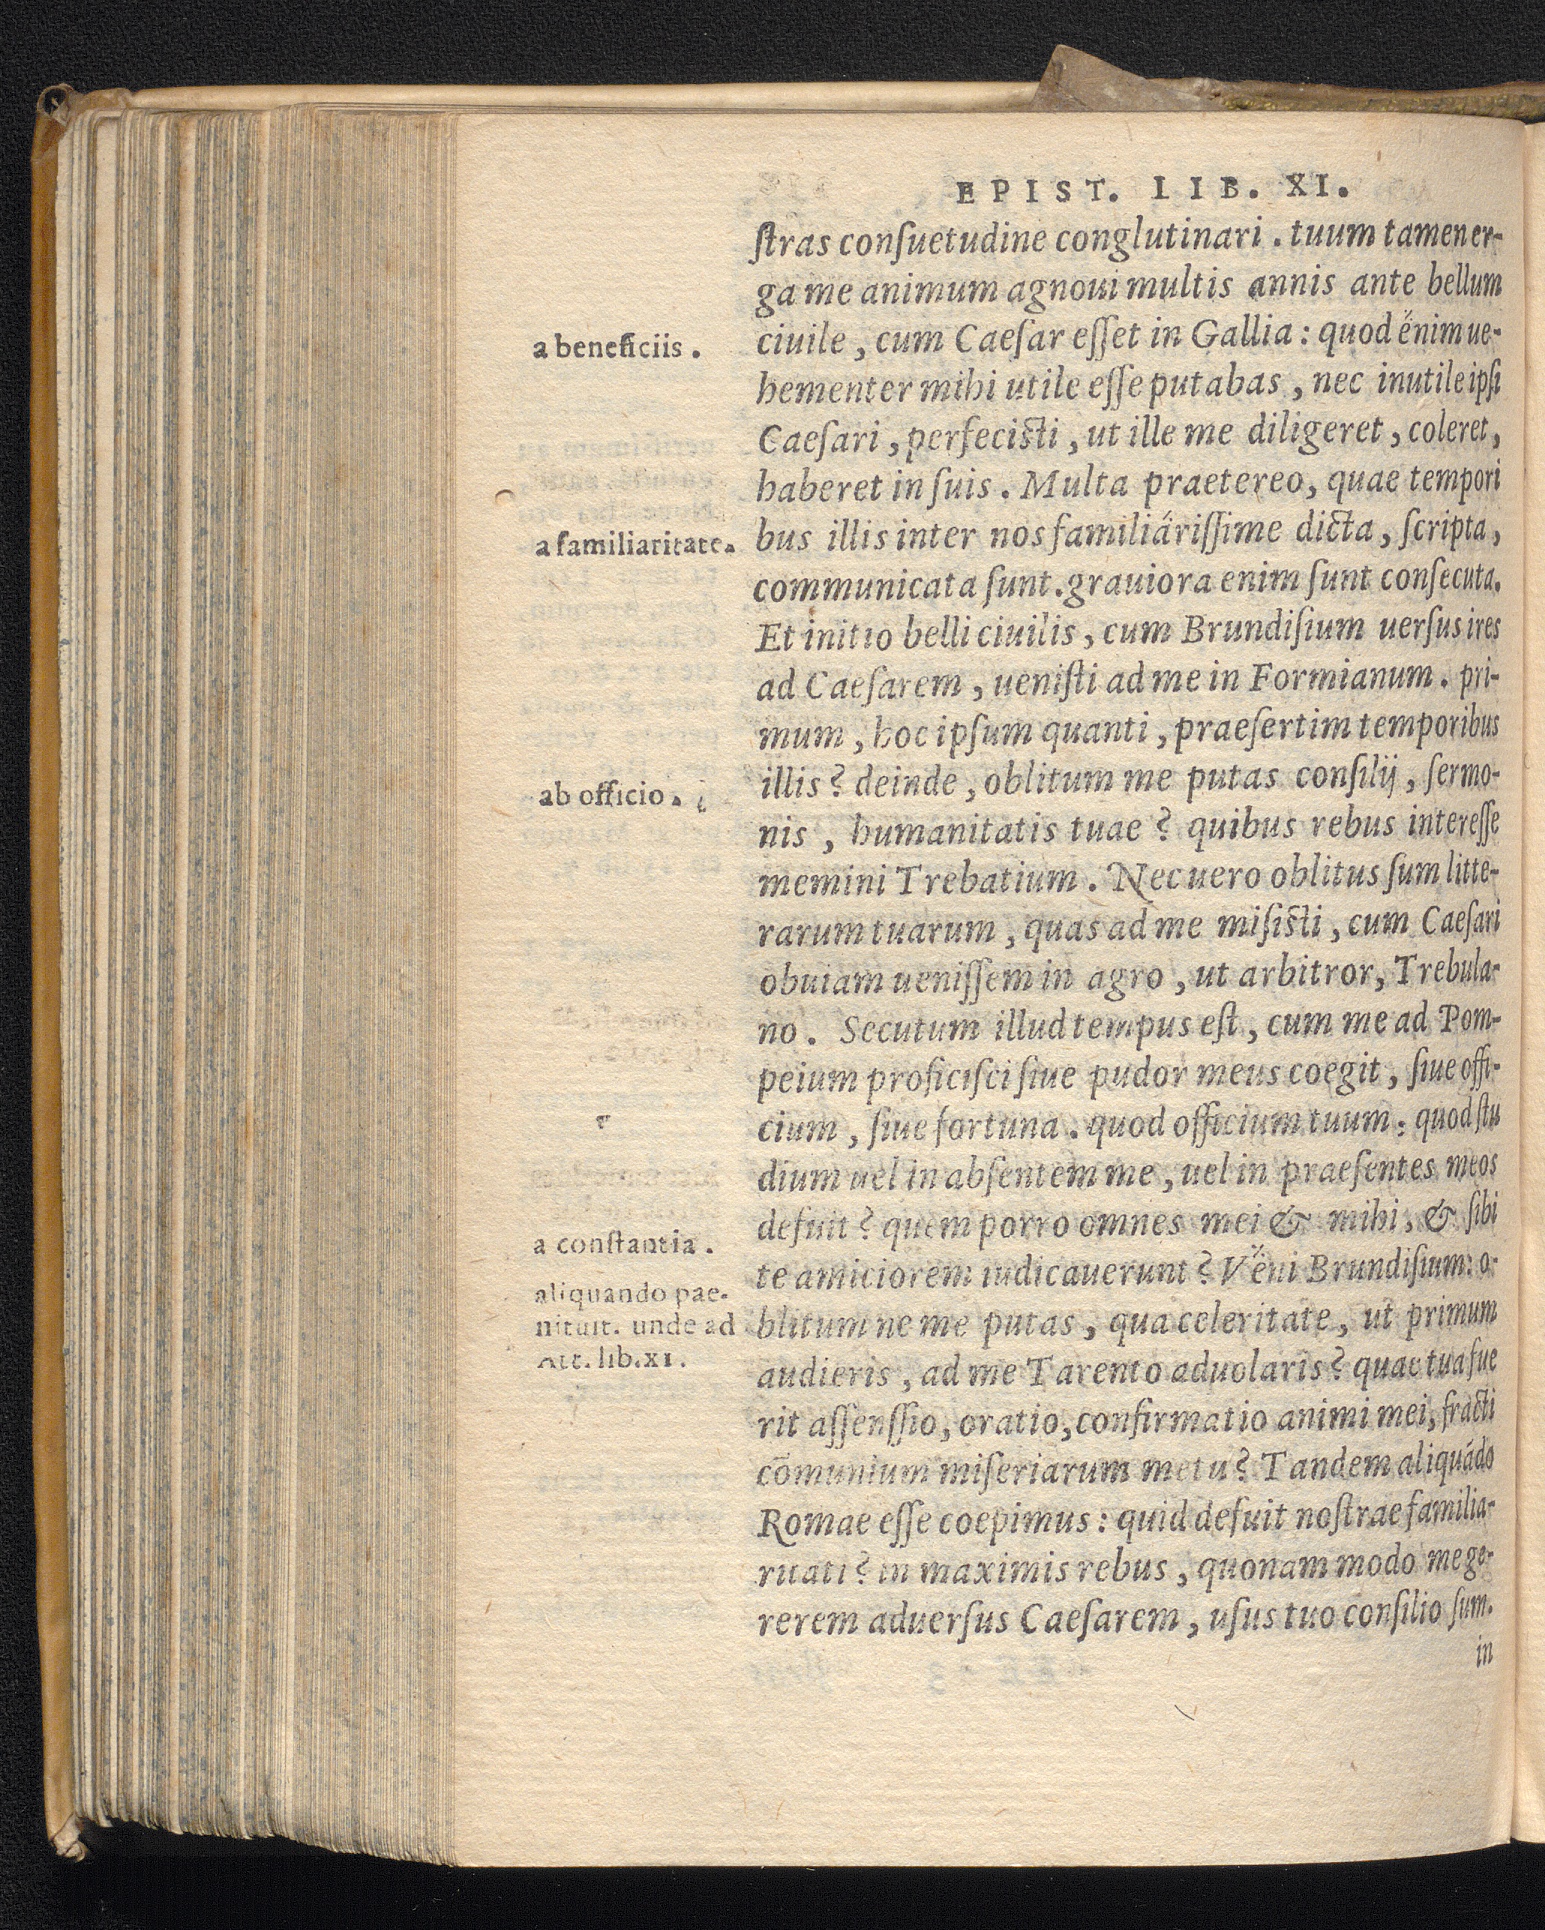 EPIST. LIB. XI.
ſtras conſuetudine conglutinari . tuum tamen er-
ga me animum agnoui multis annis ante bellum
a beneficiis .
ciuile , cum Caeſar eſſet in Gallia : quod enim ue-
hementer mihi utile eſſe putabas , nec inutile ipſi
Caeſari , perfeciſti , ut ille me diligeret , coleret ,
haberet in ſuis . Multa praetereo, quae tempori
a familiaritate.
bus illis inter nos familiáriſſime dicta , ſcripta ,
communicata ſunt. grauiora enim ſunt conſecuta.
Et initio belli ciuilis , cum Brundiſium uerſus ires
ad Caeſarem , ueniſti ad me in Formianum . pri-
mum , hoc ipſum quanti , praeſertim temporibus
ab officio .
illis ? deinde , oblitum me putas conſilij , ſermo-
nis , humanitatis tuae ? quibus rebus intereſſe
memini Trebatium . Nec uero oblitus ſum litte-
rarum tuarum , quas ad me miſiſti , cum Caeſari
obuiam ueniſſem in agro , ut arbitror, Trebula-
no . Secutum illud tempus eſt , cum me ad Pom-
peium proficiſci ſiue pudor meus coegit , ſiue offi-
cium , ſiue fortuna . quod officium tuum : quod ſtu
dium uel in abſentem me , uel in praeſentes meos
defuit ? quem porro omnes mei & mihi , & ſibi
a conſtantia .
te amiciorem iudicauerunt ? Vëni Brundiſium: o-
aliquando pae-
nituit. unde ad
Att. lib. XI .
blitum ne me putas , qua celeritate , ut primum
audieris , ad me Tarento aduolaris ? quae tua fue
rit aſſenſſio, oratio, confirmatio animi mei, fracti
cōmunium miſeriarum metu ? Tandem aliquádo
Romae eſſe coepimus : quid defuit noſtrae familia-
ritati ? in maximis rebus , quonam modo me ge-
rerem aduerſus Caeſarem , uſus tuo conſilio ſum.
in